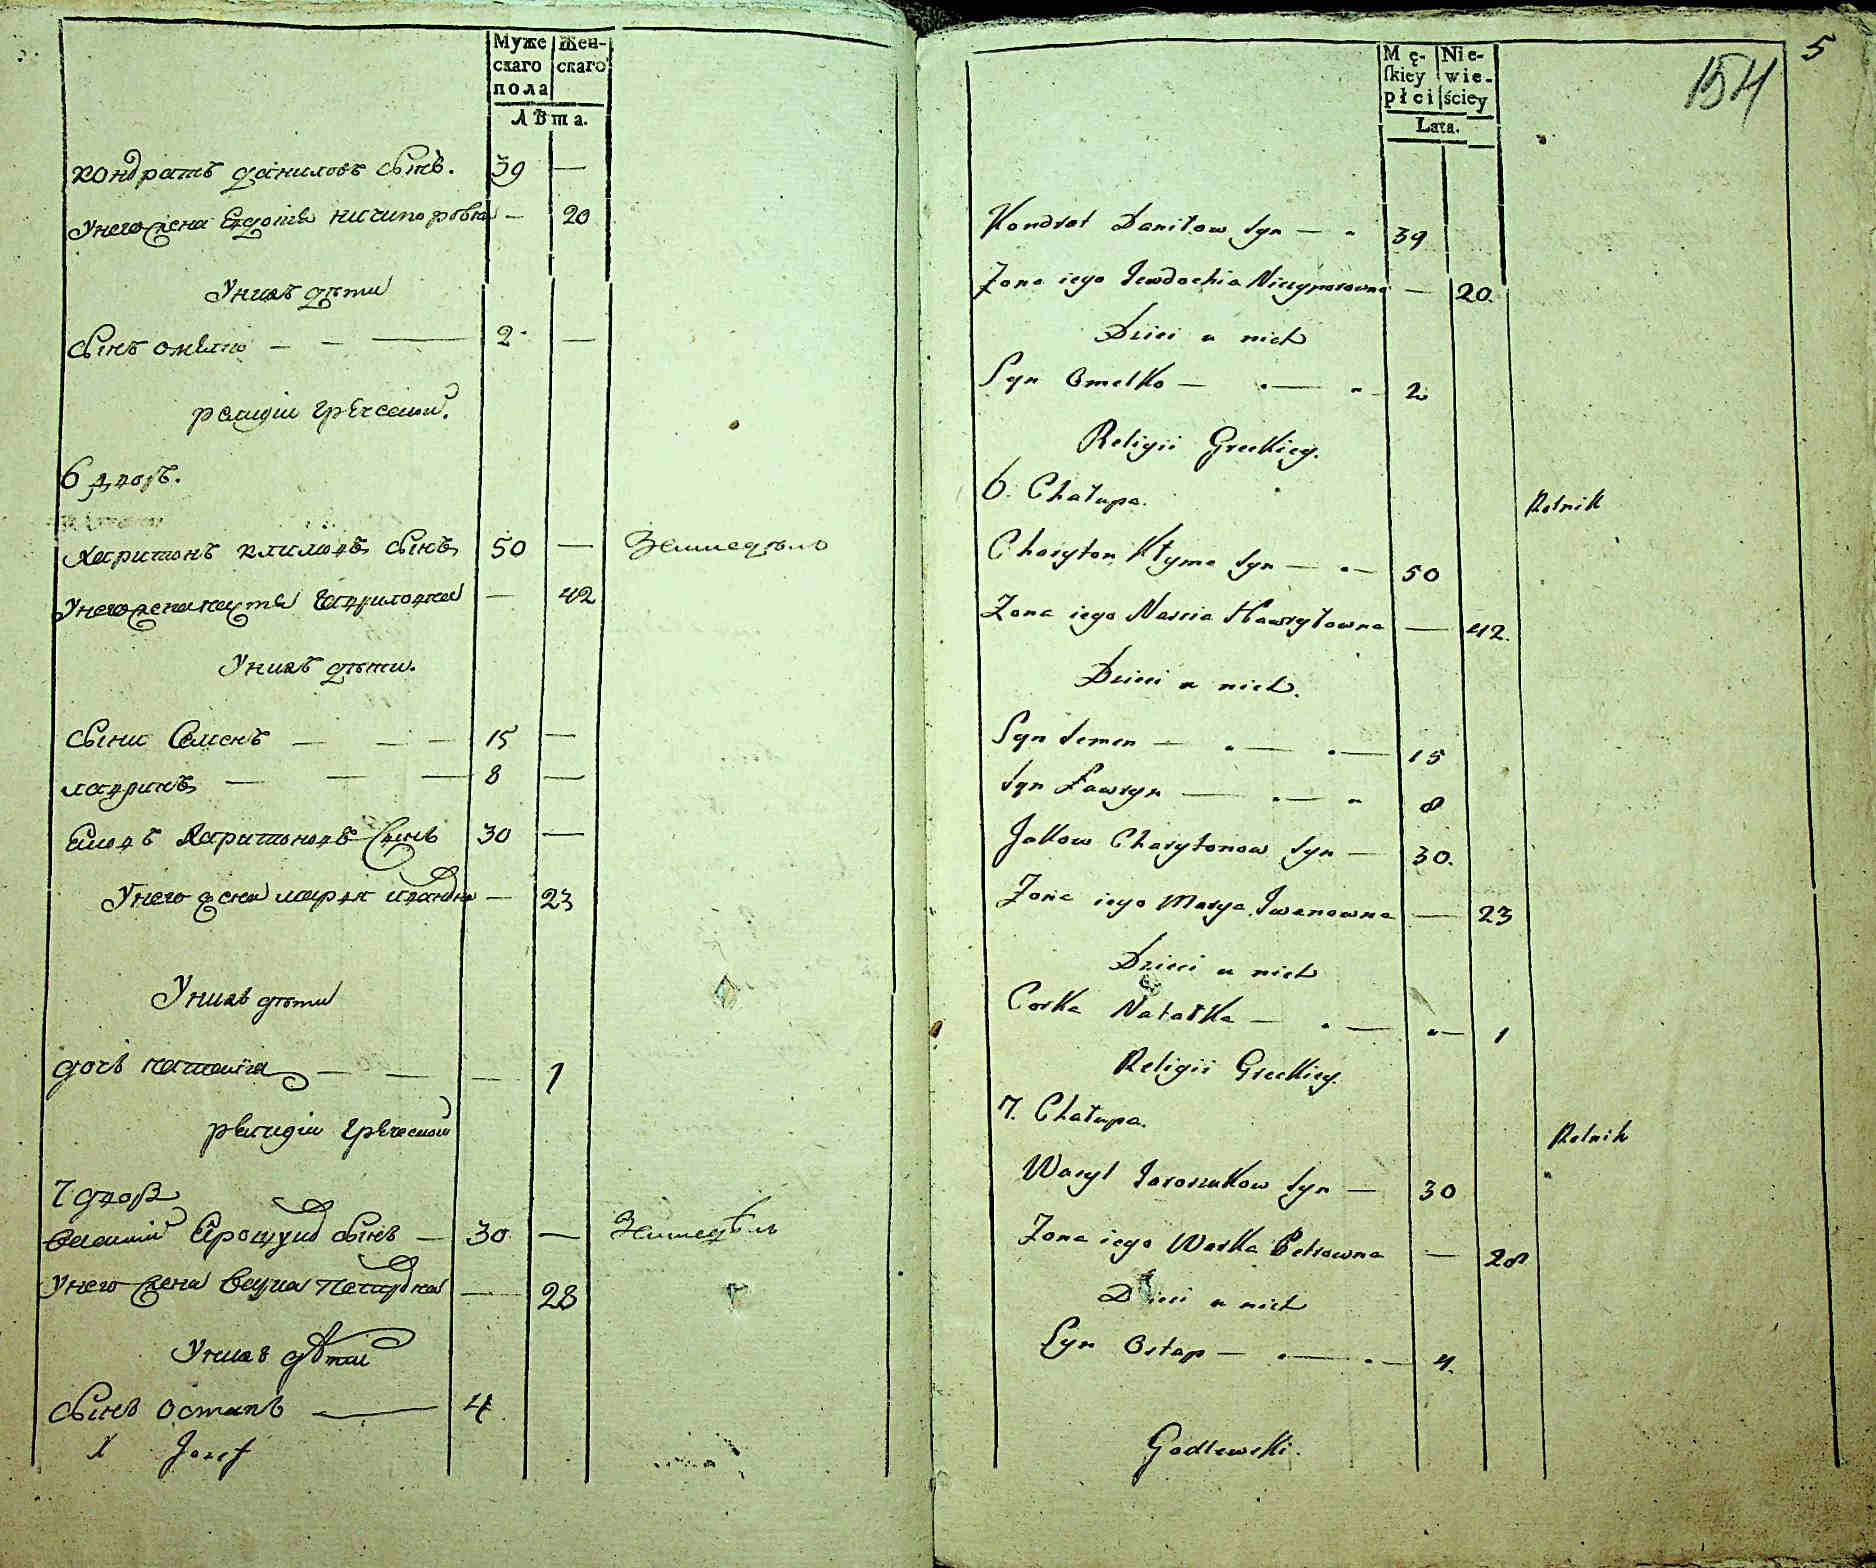 Муже Жен-
скаго скаго
пола
Лѣта.
кондратъ даниловъ сынъ. 39 —
Унего жена Евдотія ничипоровна — 20
Унихъ дѣти
сынъ омелко — — — 2 —
релидіи греческой.
6 дворъ.
Харитонъ климовъ сынъ 50 — Земледѣлъ
Унего жена настя Гаврилова — 42
Унихъ дѣти.
сыни Семенъ — — — 15 —
лавринъ — — — 8 —
Яковъ Харитоновъ сынъ 30 —
Унего жена маря иванвна — 23
Унихъ дѣти
дочь наталка — — — 1
релидіи греческой
7 дворъ
василий Ярощукъ сынъ — 30 — Земледѣлъ
Унего жена васка петровна — 28
Унихъ дѣти
сынъ остапъ — 4
X Jozef
5
154
M ę- Nie-
ſkiey wie-
płci ściey
Lata.
Kondrat Daniłow syn — 39
Zona iego Jewdochia Niczyporowna — 20.
Dzieci u nich
Syn Omelko — — 2
Religii Greckiey.
6. Chałupa. Rolnik
Charyton Kłyma syn — — 50
Zona iego Nascia Hawryłowna — 42.
Dzieci u nich.
Syn Semen — — — 15
Syn Ławryn — — 8
Jakow Charytonow syn — 30.
Zona iego Marya Iwanowna — 23
Dzieci u nich
Corka Natałka — — — 1
Religii Greckiey.
7. Chałupa. Rolnik
Wasyl Jaroszukow syn — 30
Zona iego Waska Petrowna — 28
Dzieci u nich
Syn Ostap — — — 4.
Godlewski.